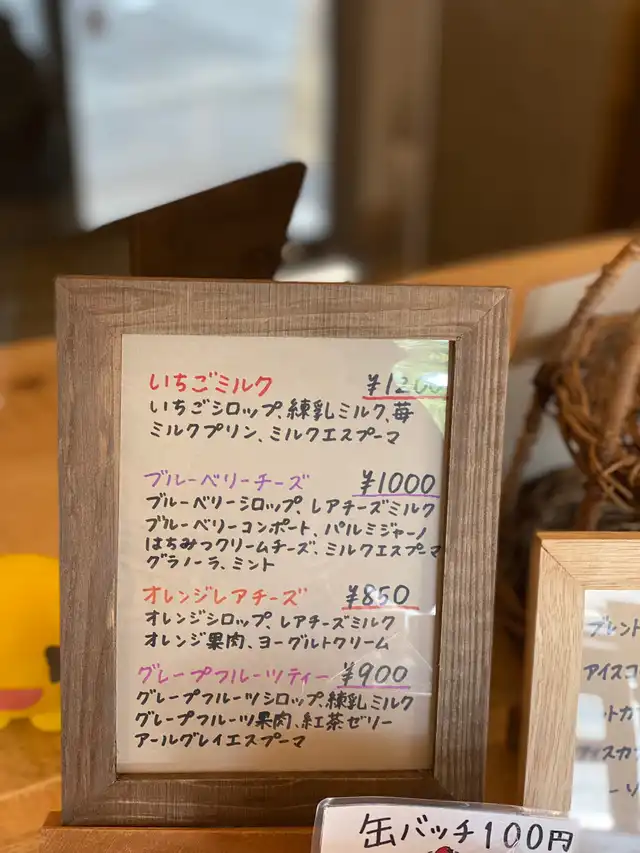 いちごミルク ¥1200
いちごシロップ、練乳ミルク、苺
ミルクプリン、ミルクエスプーマ
ブルーベリーチーズ ¥1000
ブルーベリーシロップ、レアチーズミルク
ブルーベリーコンポート、パルミジャーノ
はちみつクリームチーズ、ミルクエスプーマ
グラノーラ、ミント
オレンジレアチーズ ¥850
オレンジシロップ、レアチーズミルク
オレンジ果肉、ヨーグルトクリーム
グレープフルーツティー ¥900
グレープフルーツシロップ、練乳ミルク
グレープフルーツ果肉、紅茶ゼリー
アールグレイエスプーマ
ブレント
アイスコ
缶バッチ100円